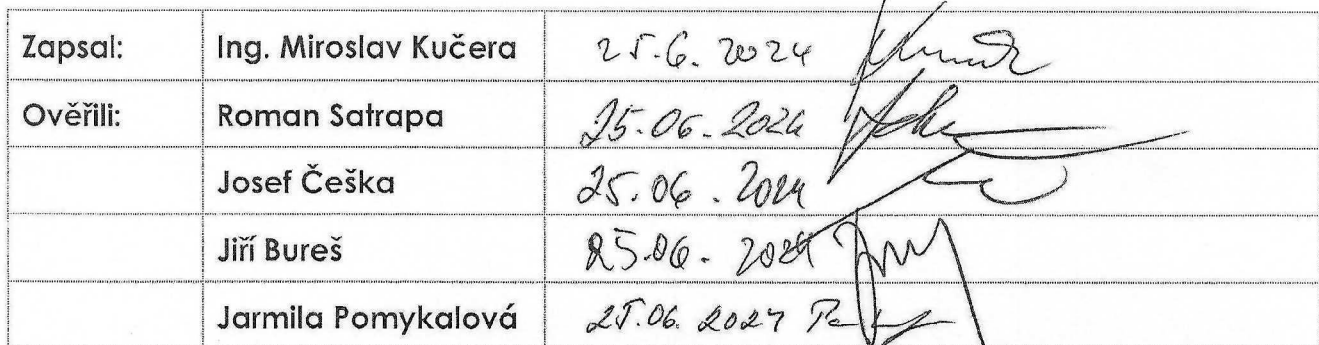 Zapsal: Ing. Miroslav Kučera 25.6. 2024
Ověřili: Roman Satrapa 25.06.2024
Josef Češka 25.06.2024
Jiří Bureš 25.06.2024
Jarmila Pomykalová 25.06.2024